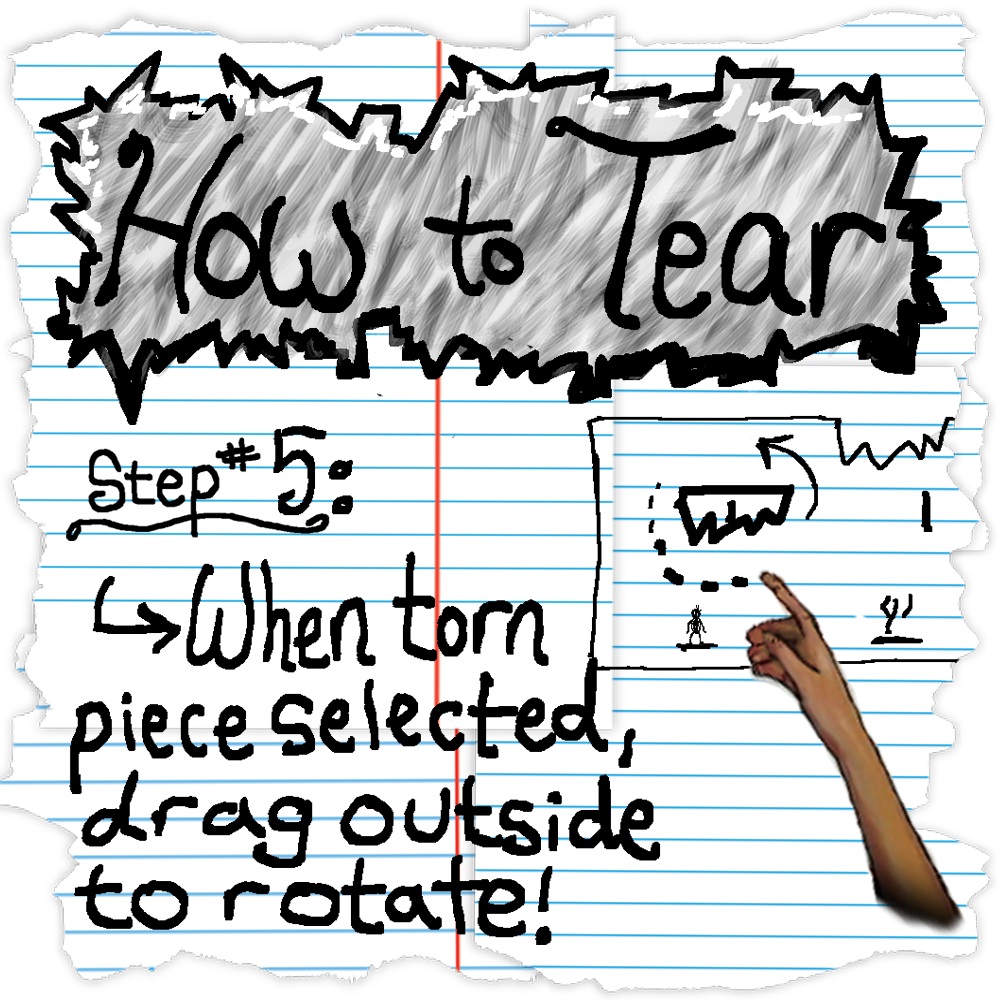 How to Tear
Step #5:
When torn
piece selected,
drag outside
to rotate!